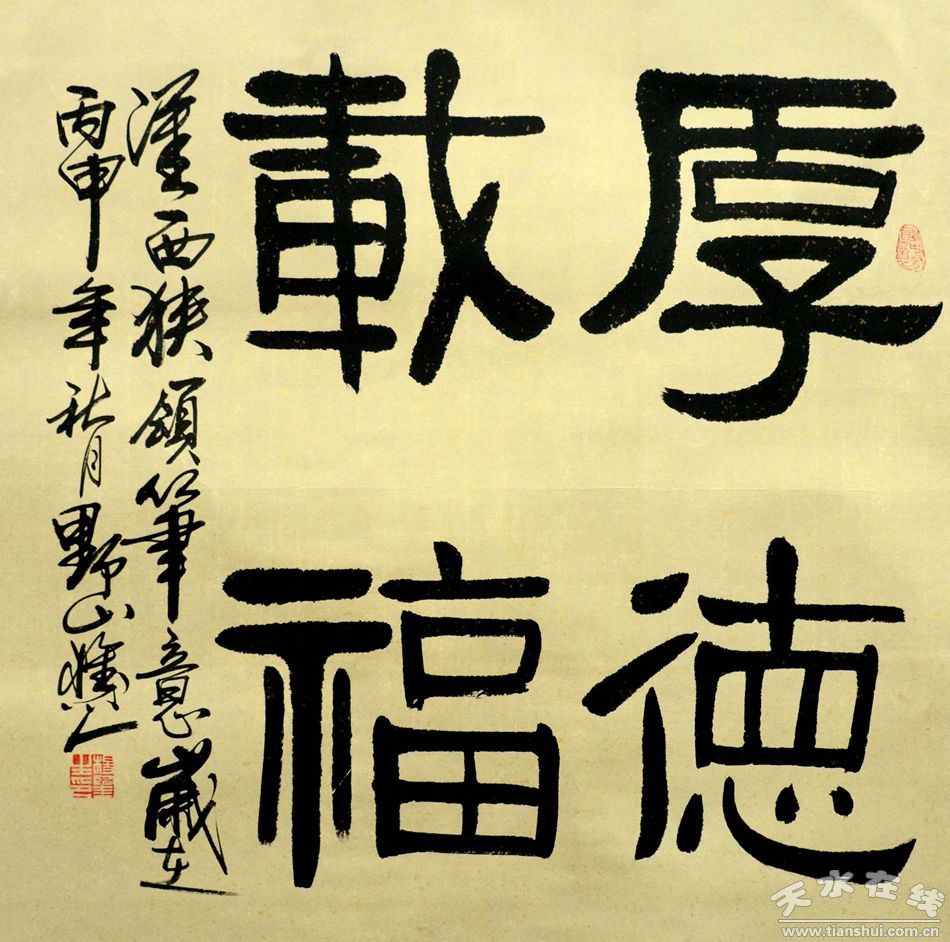 厚德
載福
漢西狹頌筆意歲在
丙申年秋月野山樵人
天水在线
www.tianshui.com.cn